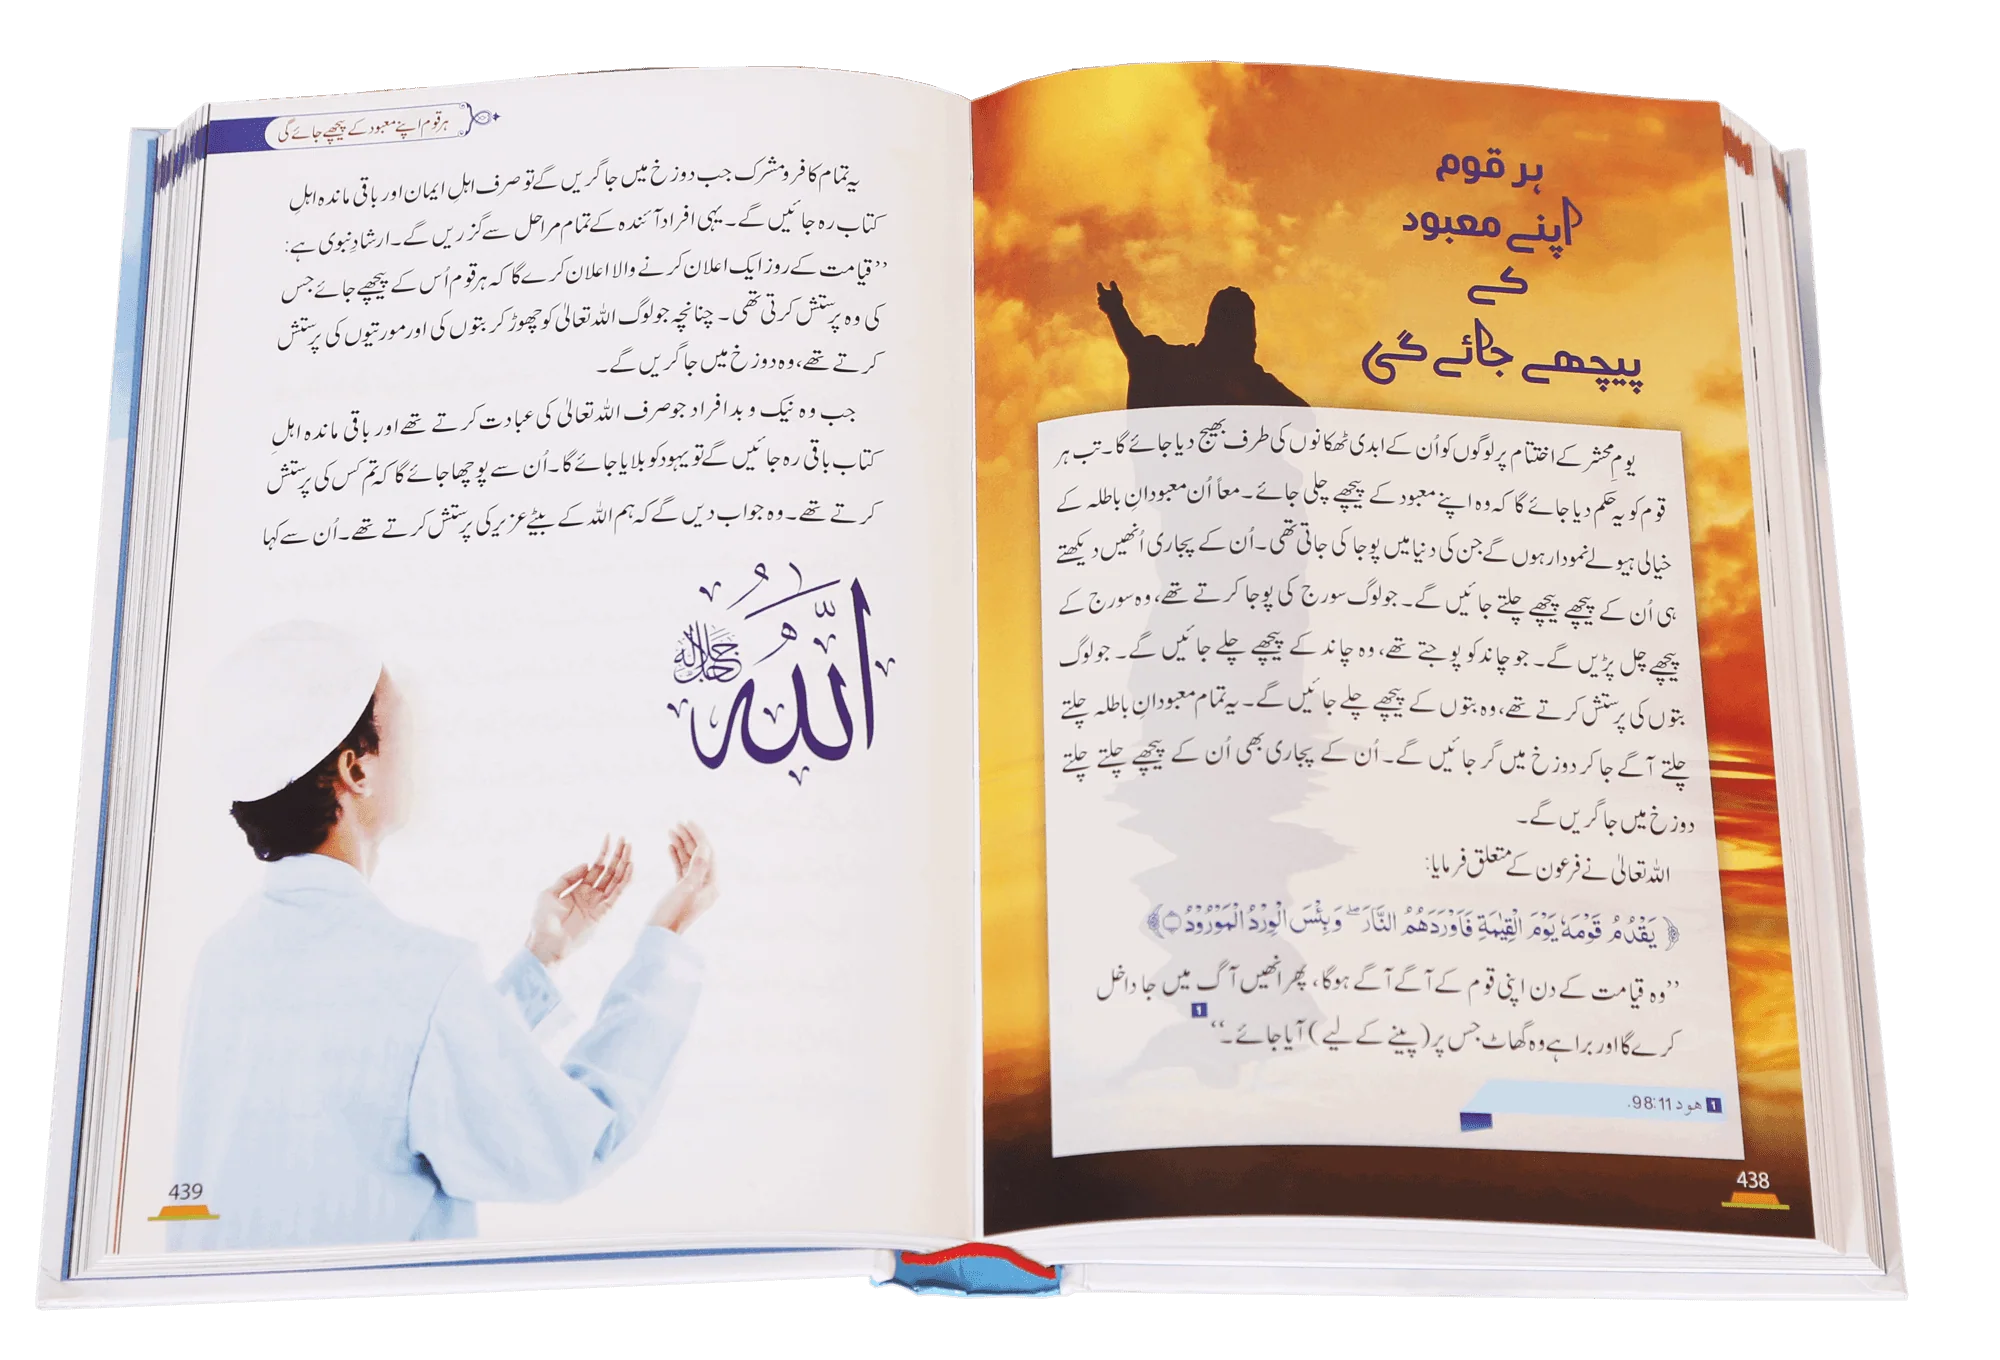 ہر قوم
اپنے معبود
کے
پیچھے جائے گی
یومِ محشر کے اختتام پر لوگوں کو اُن کے ابدی ٹھکانوں کی طرف بھیج دیا جائے گا۔ تب ہر
قوم کو یہ حکم دیا جائے گا کہ وہ اپنے معبود کے پیچھے چلی جائے۔ معاً اُن معبودانِ باطلہ کے
خیالی ہیولے نمودار ہوں گے جن کی دنیا میں پوجا کی جاتی تھی۔ اُن کے پجاری اُنھیں دیکھتے
ہی اُن کے پیچھے پیچھے چلتے جائیں گے۔ جو لوگ سورج کی پوجا کرتے تھے، وہ سورج کے
پیچھے چل پڑیں گے۔ جو چاند کو پوجتے تھے، وہ چاند کے پیچھے چلے جائیں گے۔ جو لوگ
بتوں کی پرستش کرتے تھے، وہ بتوں کے پیچھے چلے جائیں گے۔ یہ تمام معبودانِ باطلہ چلتے
چلتے آگے جا کر دوزخ میں گر جائیں گے۔ اُن کے پجاری بھی اُن کے پیچھے چلتے چلتے
دوزخ میں جا گریں گے۔
اللہ تعالیٰ نے فرعون کے متعلق فرمایا:
﴿یَقْدُمُ قَوْمَهٗ یَوْمَ الْقِیٰمَةِ فَاَوْرَدَهُمُ النَّارَ ؕ وَ بِئْسَ الْوِرْدُ الْمَوْرُوْدُ﴾
’’وہ قیامت کے دن اپنی قوم کے آگے آگے ہوگا، پھر انھیں آگ میں جا داخل
کرے گا اور برا ہے وہ گھاٹ جس پر (پینے کے لیے) آیا جائے۔‘‘ 1
1 ھود 98:11.
438
ہر قوم اپنے معبود کے پیچھے جائے گی
یہ تمام کافر و مشرک جب دوزخ میں جا گریں گے تو صرف اہلِ ایمان اور باقی ماندہ اہلِ
کتاب رہ جائیں گے۔ یہی افراد آئندہ کے تمام مراحل سے گزریں گے۔ ارشادِ نبوی ہے:
’’قیامت کے روز ایک اعلان کرنے والا اعلان کرے گا کہ ہر قوم اُس کے پیچھے جائے جس
کی وہ پرستش کرتی تھی۔ چنانچہ جو لوگ اللہ تعالیٰ کو چھوڑ کر بتوں کی اور مورتیوں کی پرستش
کرتے تھے، وہ دوزخ میں جا گریں گے۔
جب وہ نیک و بد افراد جو صرف اللہ تعالیٰ کی عبادت کرتے تھے اور باقی ماندہ اہلِ
کتاب باقی رہ جائیں گے تو یہود کو بلایا جائے گا۔ اُن سے پوچھا جائے گا کہ تم کس کی پرستش
کرتے تھے۔ وہ جواب دیں گے کہ ہم اللہ کے بیٹے عزیر کی پرستش کرتے تھے۔ اُن سے کہا
اللّٰهُ جل جلاله
439